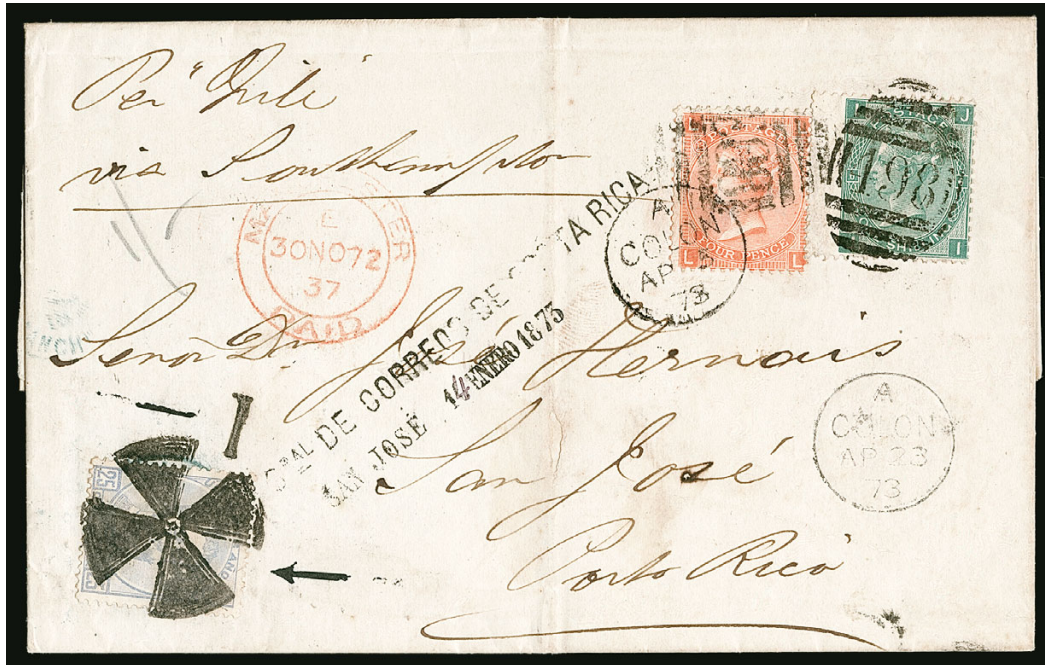 Per "Chile"
via Southampton
E
30 NO 72
37
PAID
198
POSTAGE
FOUR PENCE
L L
J
I
A
COLON
AP 23
73
GRAL DE CORREOS DE COSTA RICA
SAN JOSÉ 14 ENERO 1873
Señor Dn José Hernais
San José
Porto Rico
A
COLON
AP 23
73
25